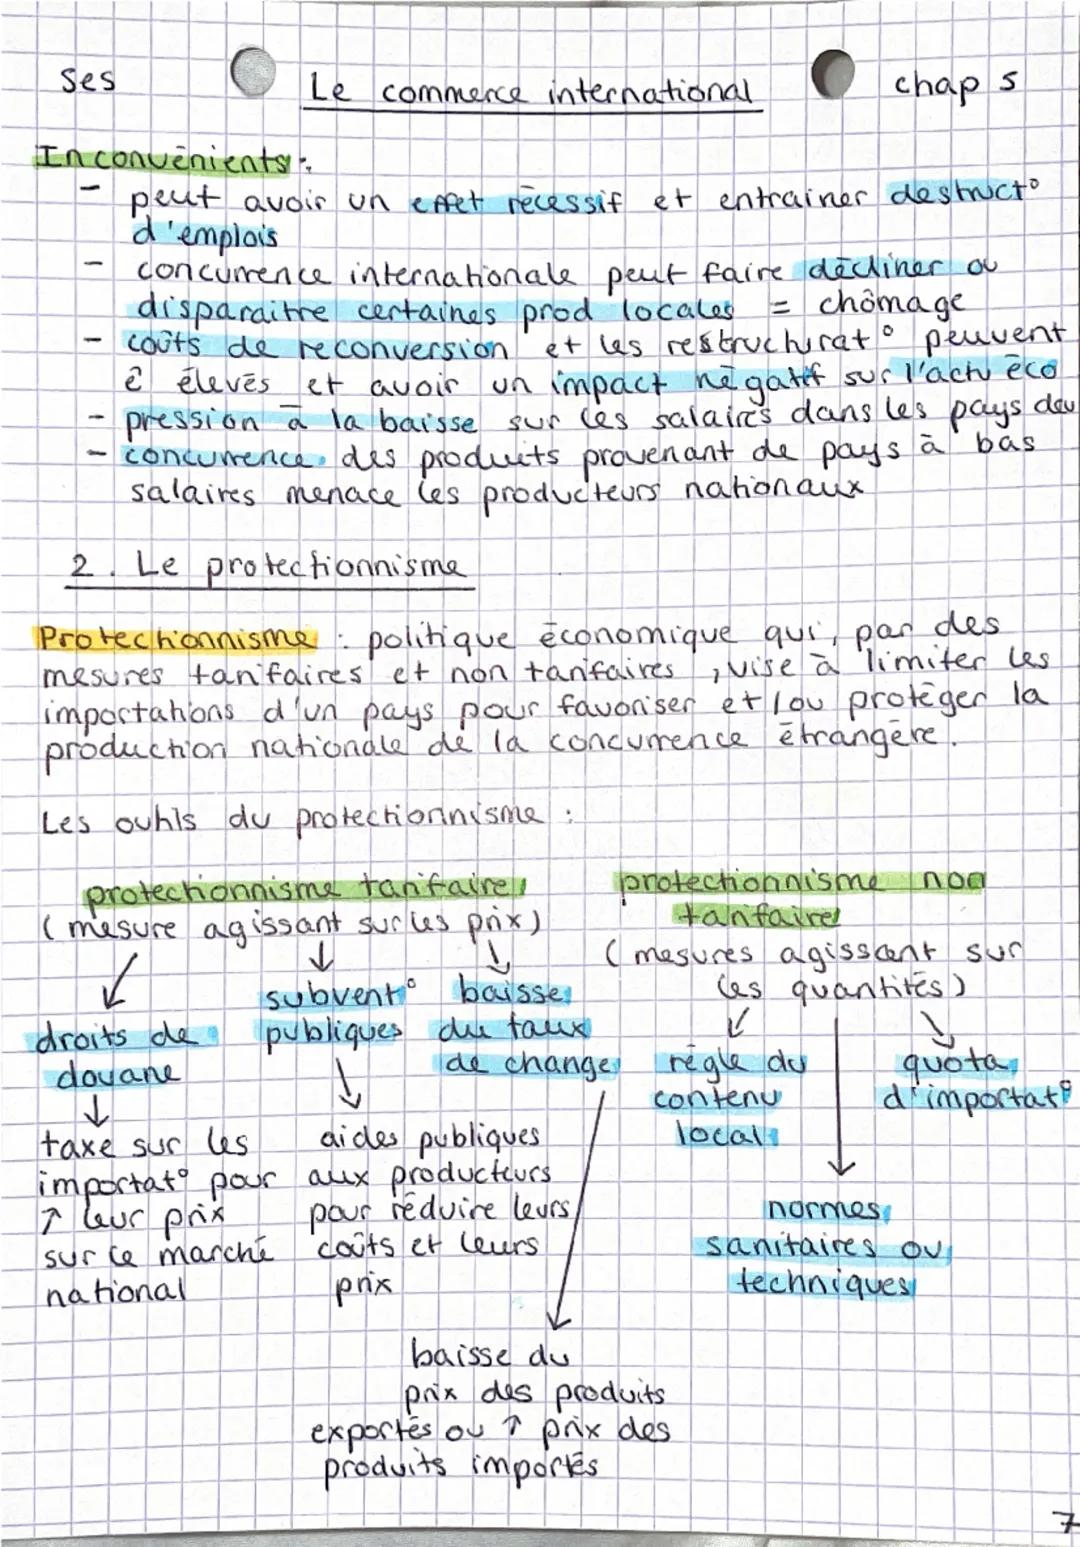 Ses
Le commerce international
chap 5
Inconvénients :
- peut avoir un effet récessif et entrainer destruct°
d'emplois
- concurrence internationale peut faire décliner ou
disparaitre certaines prod locales = chômage
- coûts de reconversion et les restructurat° peuvent
ê élevés et avoir un impact négatif sur l'actv éco
- pression à la baisse sur les salaires dans les pays dev
- concurrence des produits provenant de pays à bas
salaires menace les producteurs nationaux
2. Le protectionnisme
Protectionnisme : politique économique qui, par des
mesures tarifaires et non tarifaires, vise à limiter les
importations d'un pays pour favoriser et/ou protéger la
production nationale de la concurrence étrangère.
Les outils du protectionnisme :
protectionnisme tarifaire
(mesure agissant sur les prix)
droits de
douane
taxe sur les
importat° pour
↑ leur prix
sur le marché
national
subvent°
publiques
aides publiques
aux producteurs
pour réduire leurs
coûts et leurs
prix
baisse
du taux
de change
baisse du
prix des produits
exportés ou ↑ prix des
produits importés
protectionnisme non
tarifaire
(mesures agissant sur
les quantités)
règle du
contenu
local
normes
sanitaires ou
techniques
quota
d'importat°
7